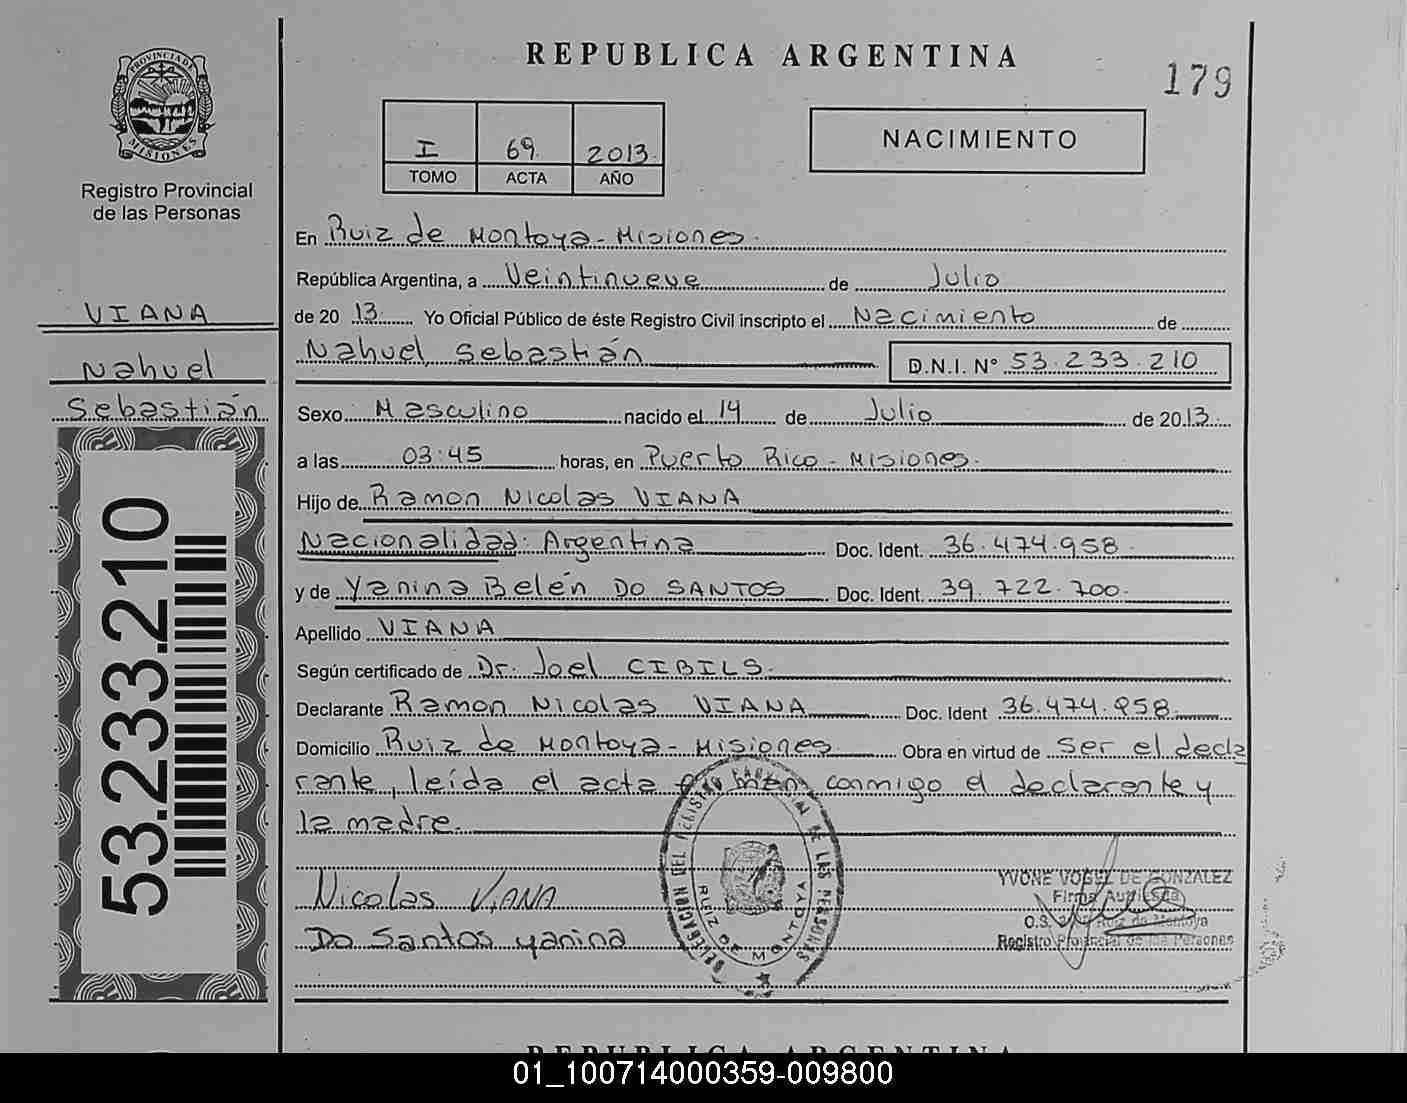 REPUBLICA ARGENTINA
179
PROVINCIA DE
MISIONES
Registro Provincial
de las Personas
I 69 2013
TOMO ACTA AÑO
NACIMIENTO
VIANA
Nahuel
Sebastián
53.233.210
En Ruiz de Montoya - Misiones.
República Argentina, a Veintinueve de Julio
de 20 13 Yo Oficial Público de éste Registro Civil inscripto el Nacimiento de
Nahuel Sebastián D.N.I. Nº 53.233.210
Sexo Masculino nacido el 14 de Julio de 2013
a las 03:45 horas, en Puerto Rico - Misiones.
Hijo de Ramon Nicolas VIANA
Nacionalidad: Argentina Doc. Ident. 36.474.958
y de Yanina Belén DO SANTOS Doc. Ident. 39.722.700.
Apellido VIANA
Según certificado de Dr. Joel CIBILS.
Declarante Ramon Nicolas VIANA Doc. Ident 36.474.958
Domicilio Ruiz de Montoya - Misiones Obra en virtud de ser el decla
rante, leída el acta conmigo el declarante y
la madre.
Nicolas VIANA
Do Santos yanina
DELEGACION DEL REGISTRO PROVINCIAL DE LAS PERSONAS
RUIZ DE MONTOYA
YVONE VOGEL DE GONZALEZ
Firma
O.S. Ruiz de Montoya
Registro Provincial de las Personas
REPUBLICA ARGENTINA
01_100714000359-009800